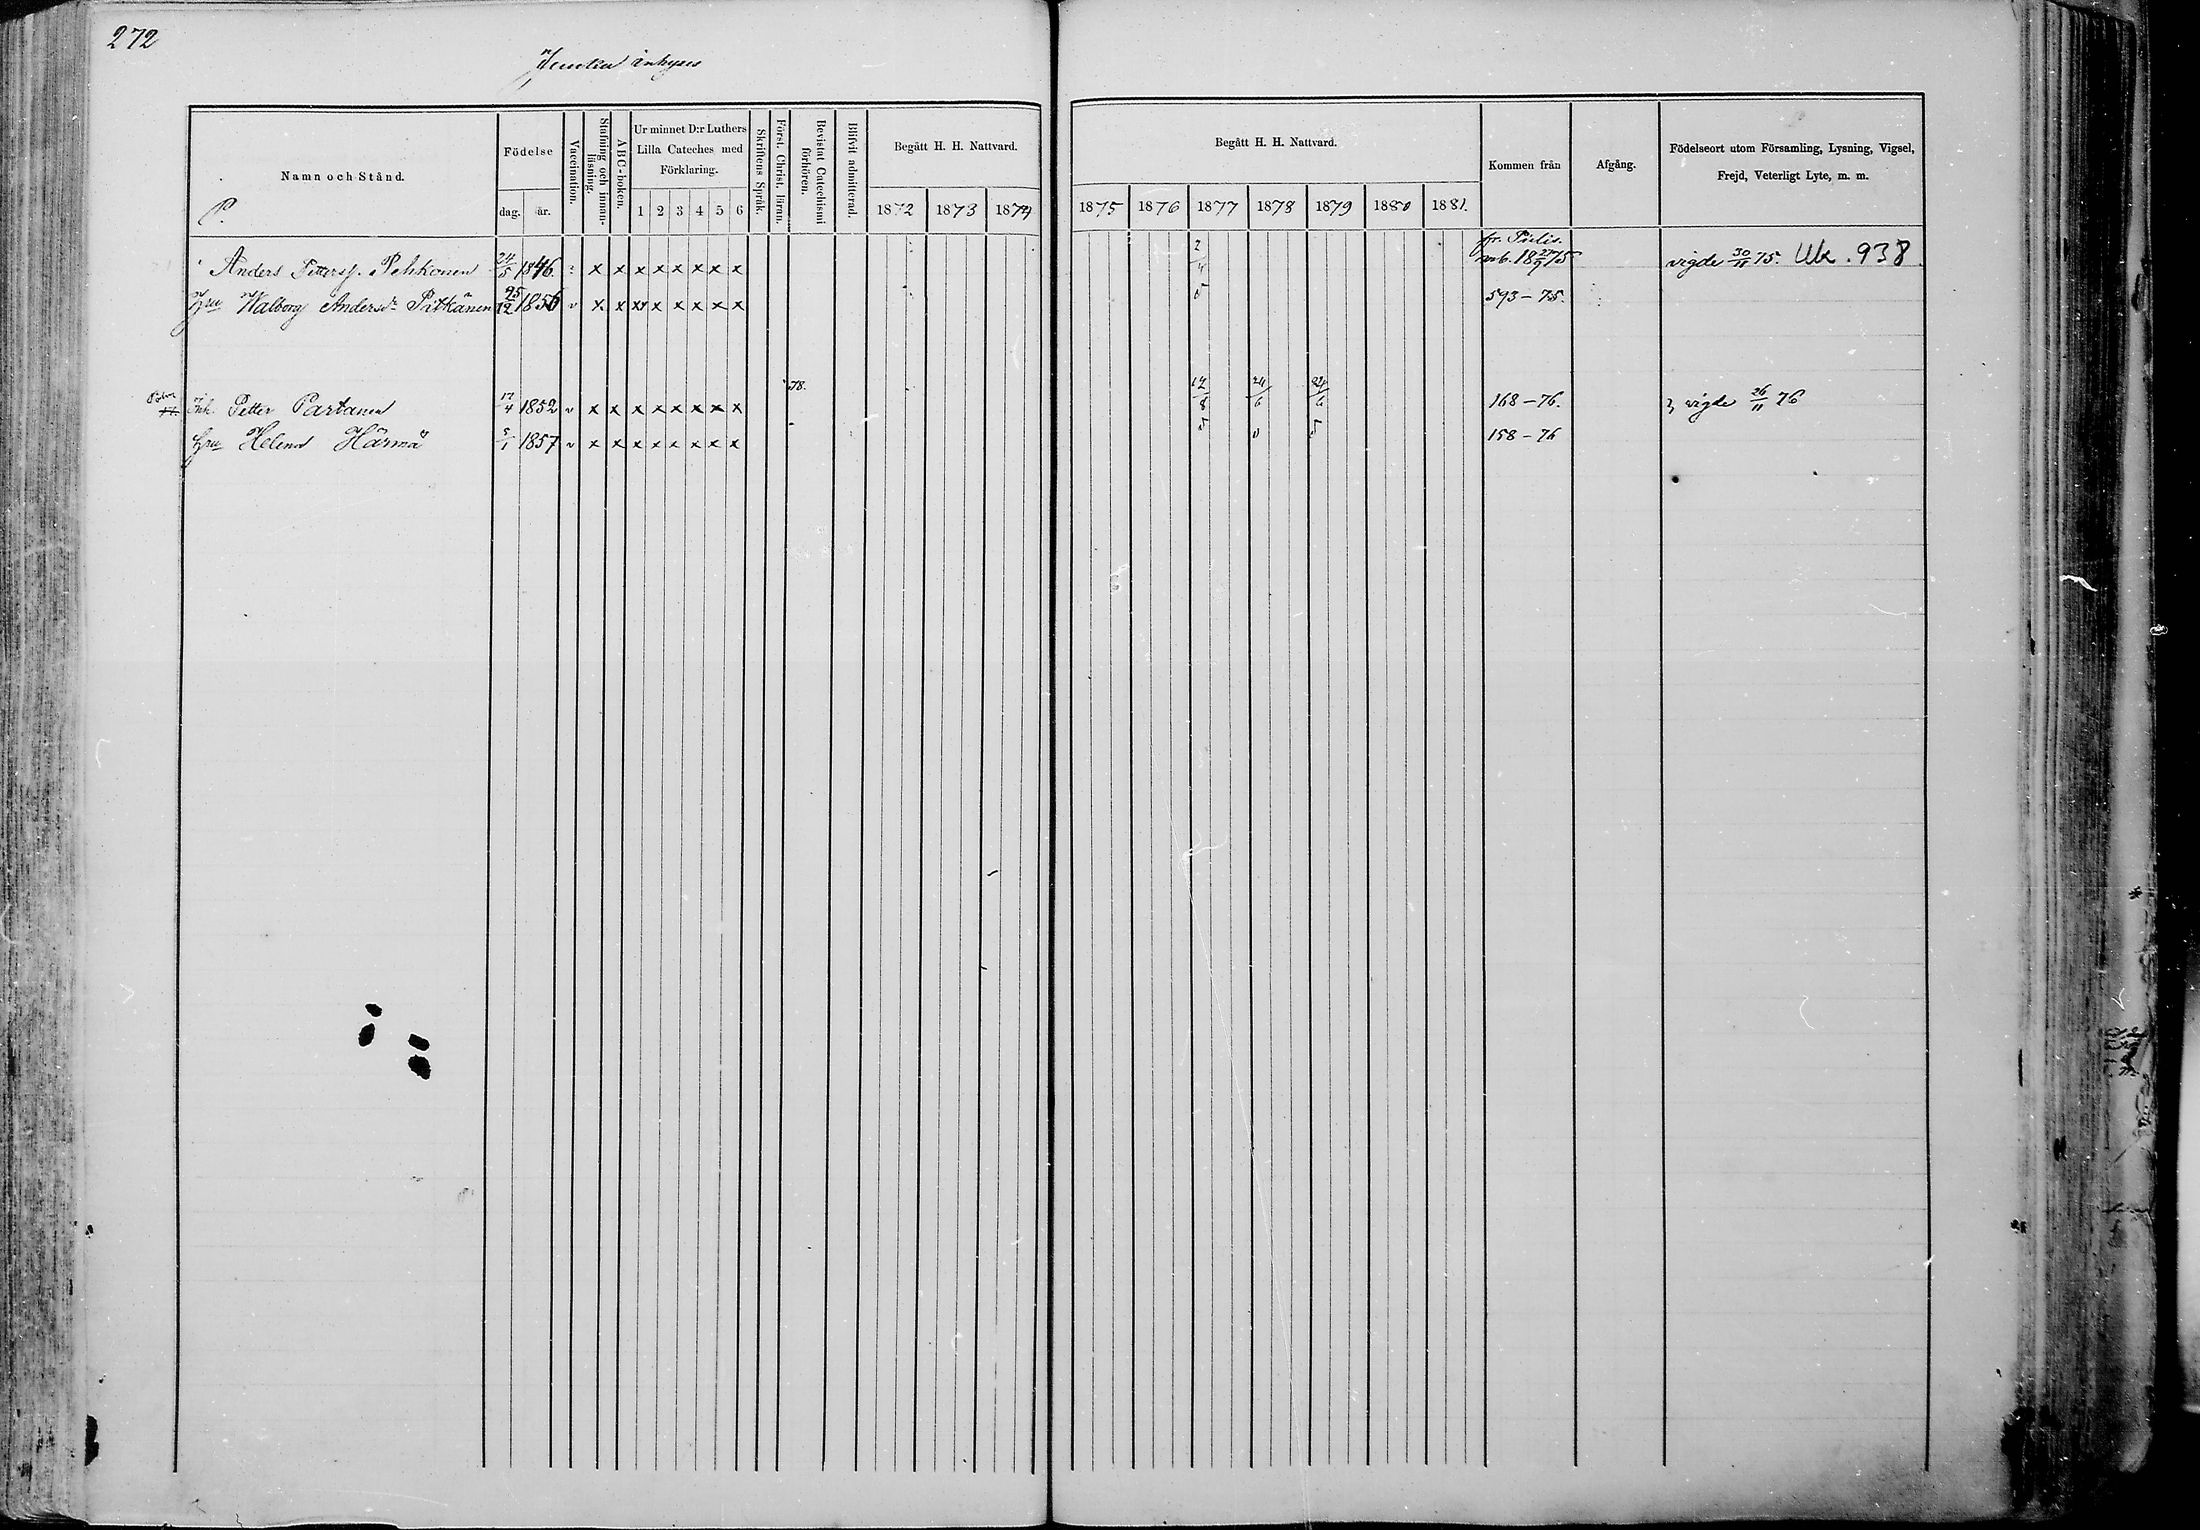 272
inhyses
Namn och Stånd.
Födelse
dag. år.
Vaccination.
Stafning och innan-
läsning.
ABC-boken.
Ur minnet D:r Luthers
Lilla Cateches med
Förklaring.
1 2 3 4 5 6
Skriftens Språk.
Först. Christ. läran.
Bevistat Catechismi
förhören.
Blifvit admitterad.
Begått H. H. Nattvard.
1872 1873 1874
Begått H. H. Nattvard.
1875 1876 1877 1878 1879 1880 1881.
Kommen från
Afgång.
Födelseort utom Församling, Lysning, Vigsel,
Frejd, Veterligt Lyte, m. m.
P.
fr. Pielis.
Anders Petterss. Pehkonen 24/5 1846 x x x x x x x x 2/4 mb. 18 27/9 75 vigde 30/11 75. Uk. 938
Hru Walborg Andersdr Pitkänen 25/12 1856 v x x x x x x x x 593-75.
78.
Inh. Petter Partanen 17/4 1852 v x x x x x x x x 12/8 24/6 24/6 168-76. } vigde 26/11 76
Hru Helena Härmä 5/1 1857 v x x x x x x x x 158-76